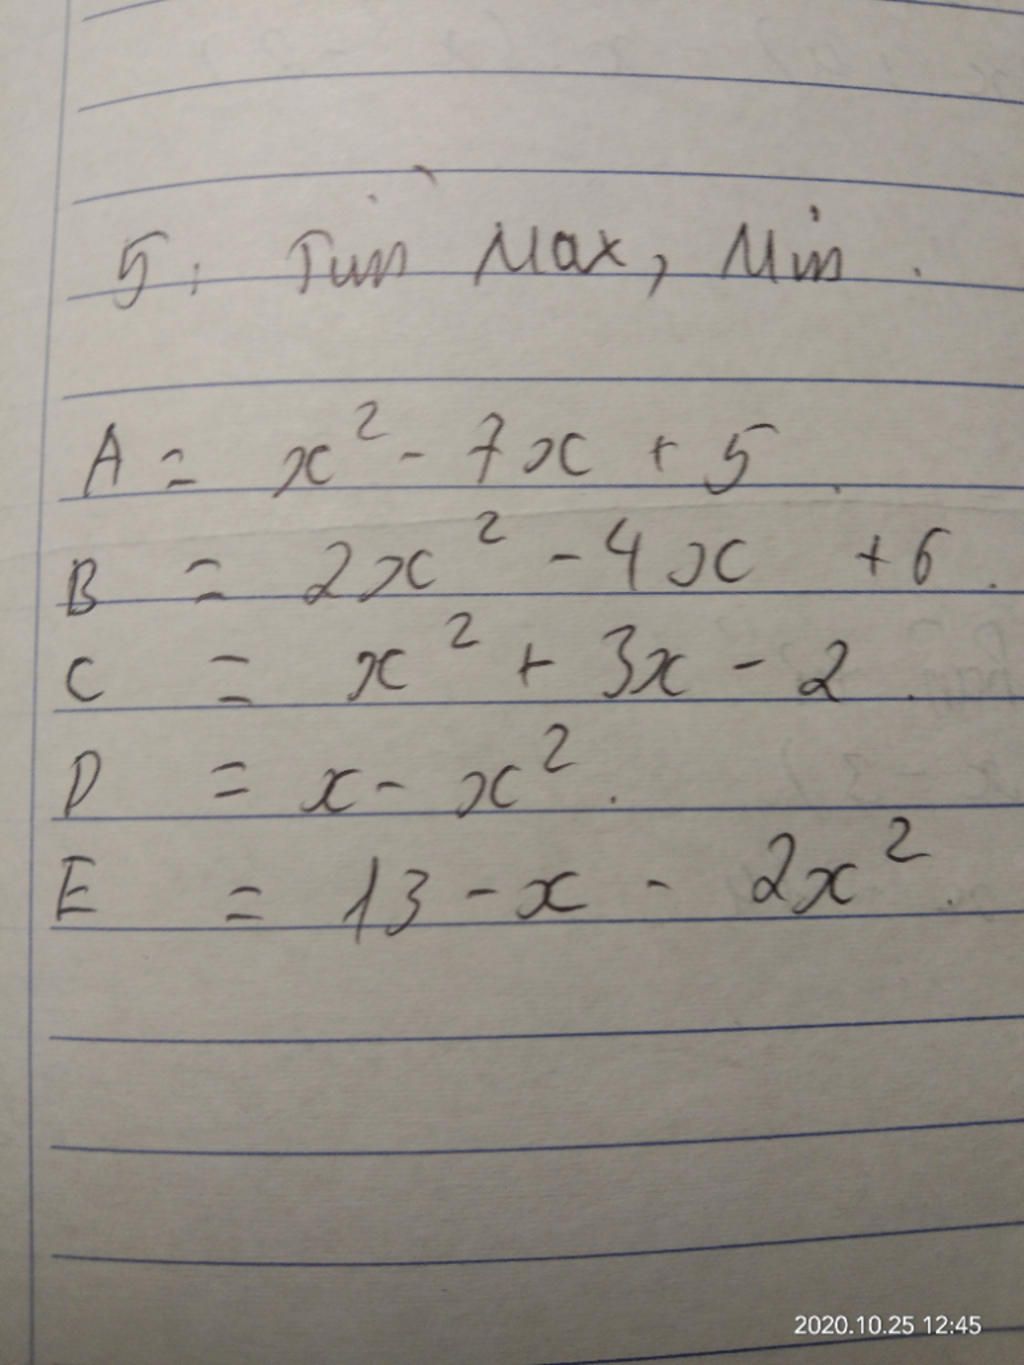 5. Tìm Max, Min.
A = x² - 7x + 5.
B = 2x² - 4x + 6.
C = x² + 3x - 2.
D = x - x².
E = 13 - x - 2x².
2020.10.25 12:45